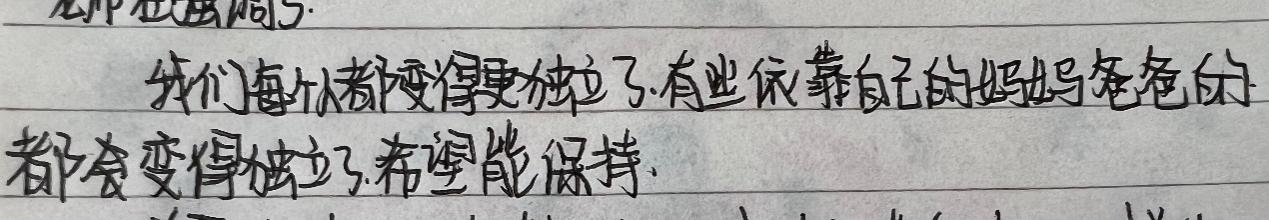 我们每个人都变得更独立了.有些依靠自己的妈妈爸爸的
都会变得独立了.希望能保持.